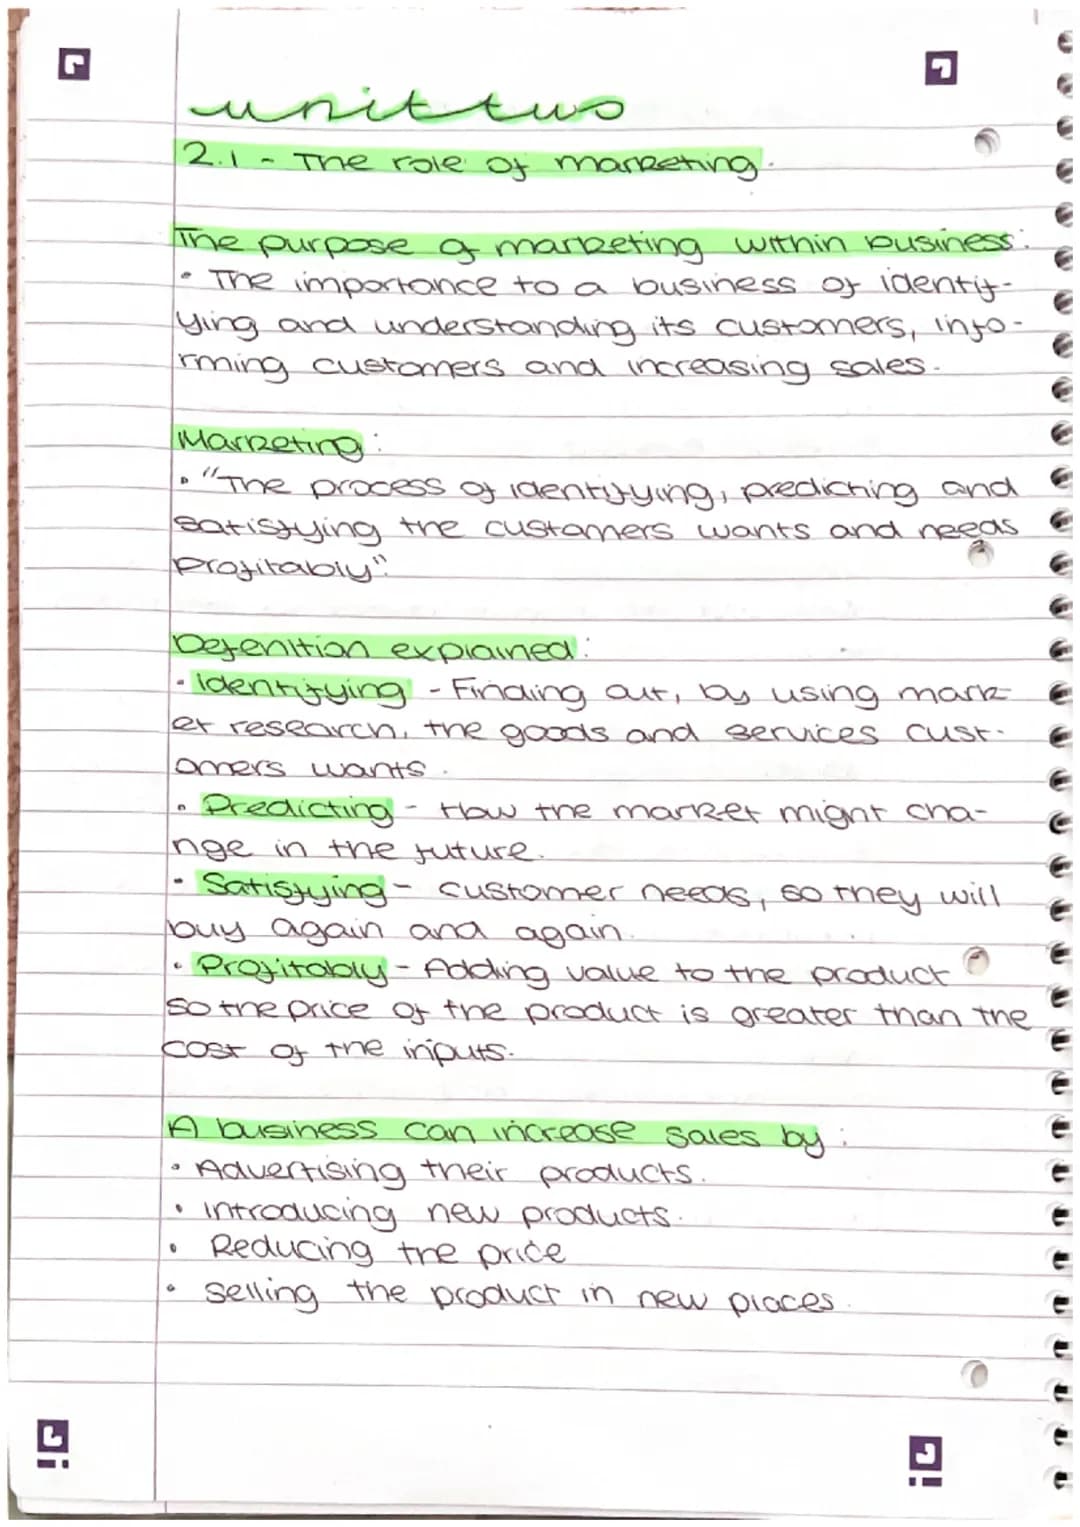 unit two
2.1 - The role of marketing.
The purpose of marketing within business:
• The importance to a business of identif-
ying and understanding its customers, info-
rming customers and increasing sales.
Marketing:
• "The process of identifying, predicting and
satisfying the customers wants and needs
profitably".
Defenition explained:
• Identifying - Finding out, by using mark
et research, the goods and services cust-
omers wants.
• Predicting - How the market might cha-
nge in the future.
• Satisfying - customer needs, so they will
buy again and again.
• Profitably - Adding value to the product
so the price of the product is greater than the
cost of the inputs.
A business can increase sales by:
• Advertising their products.
• Introducing new products.
• Reducing the price
• Selling the product in new places.